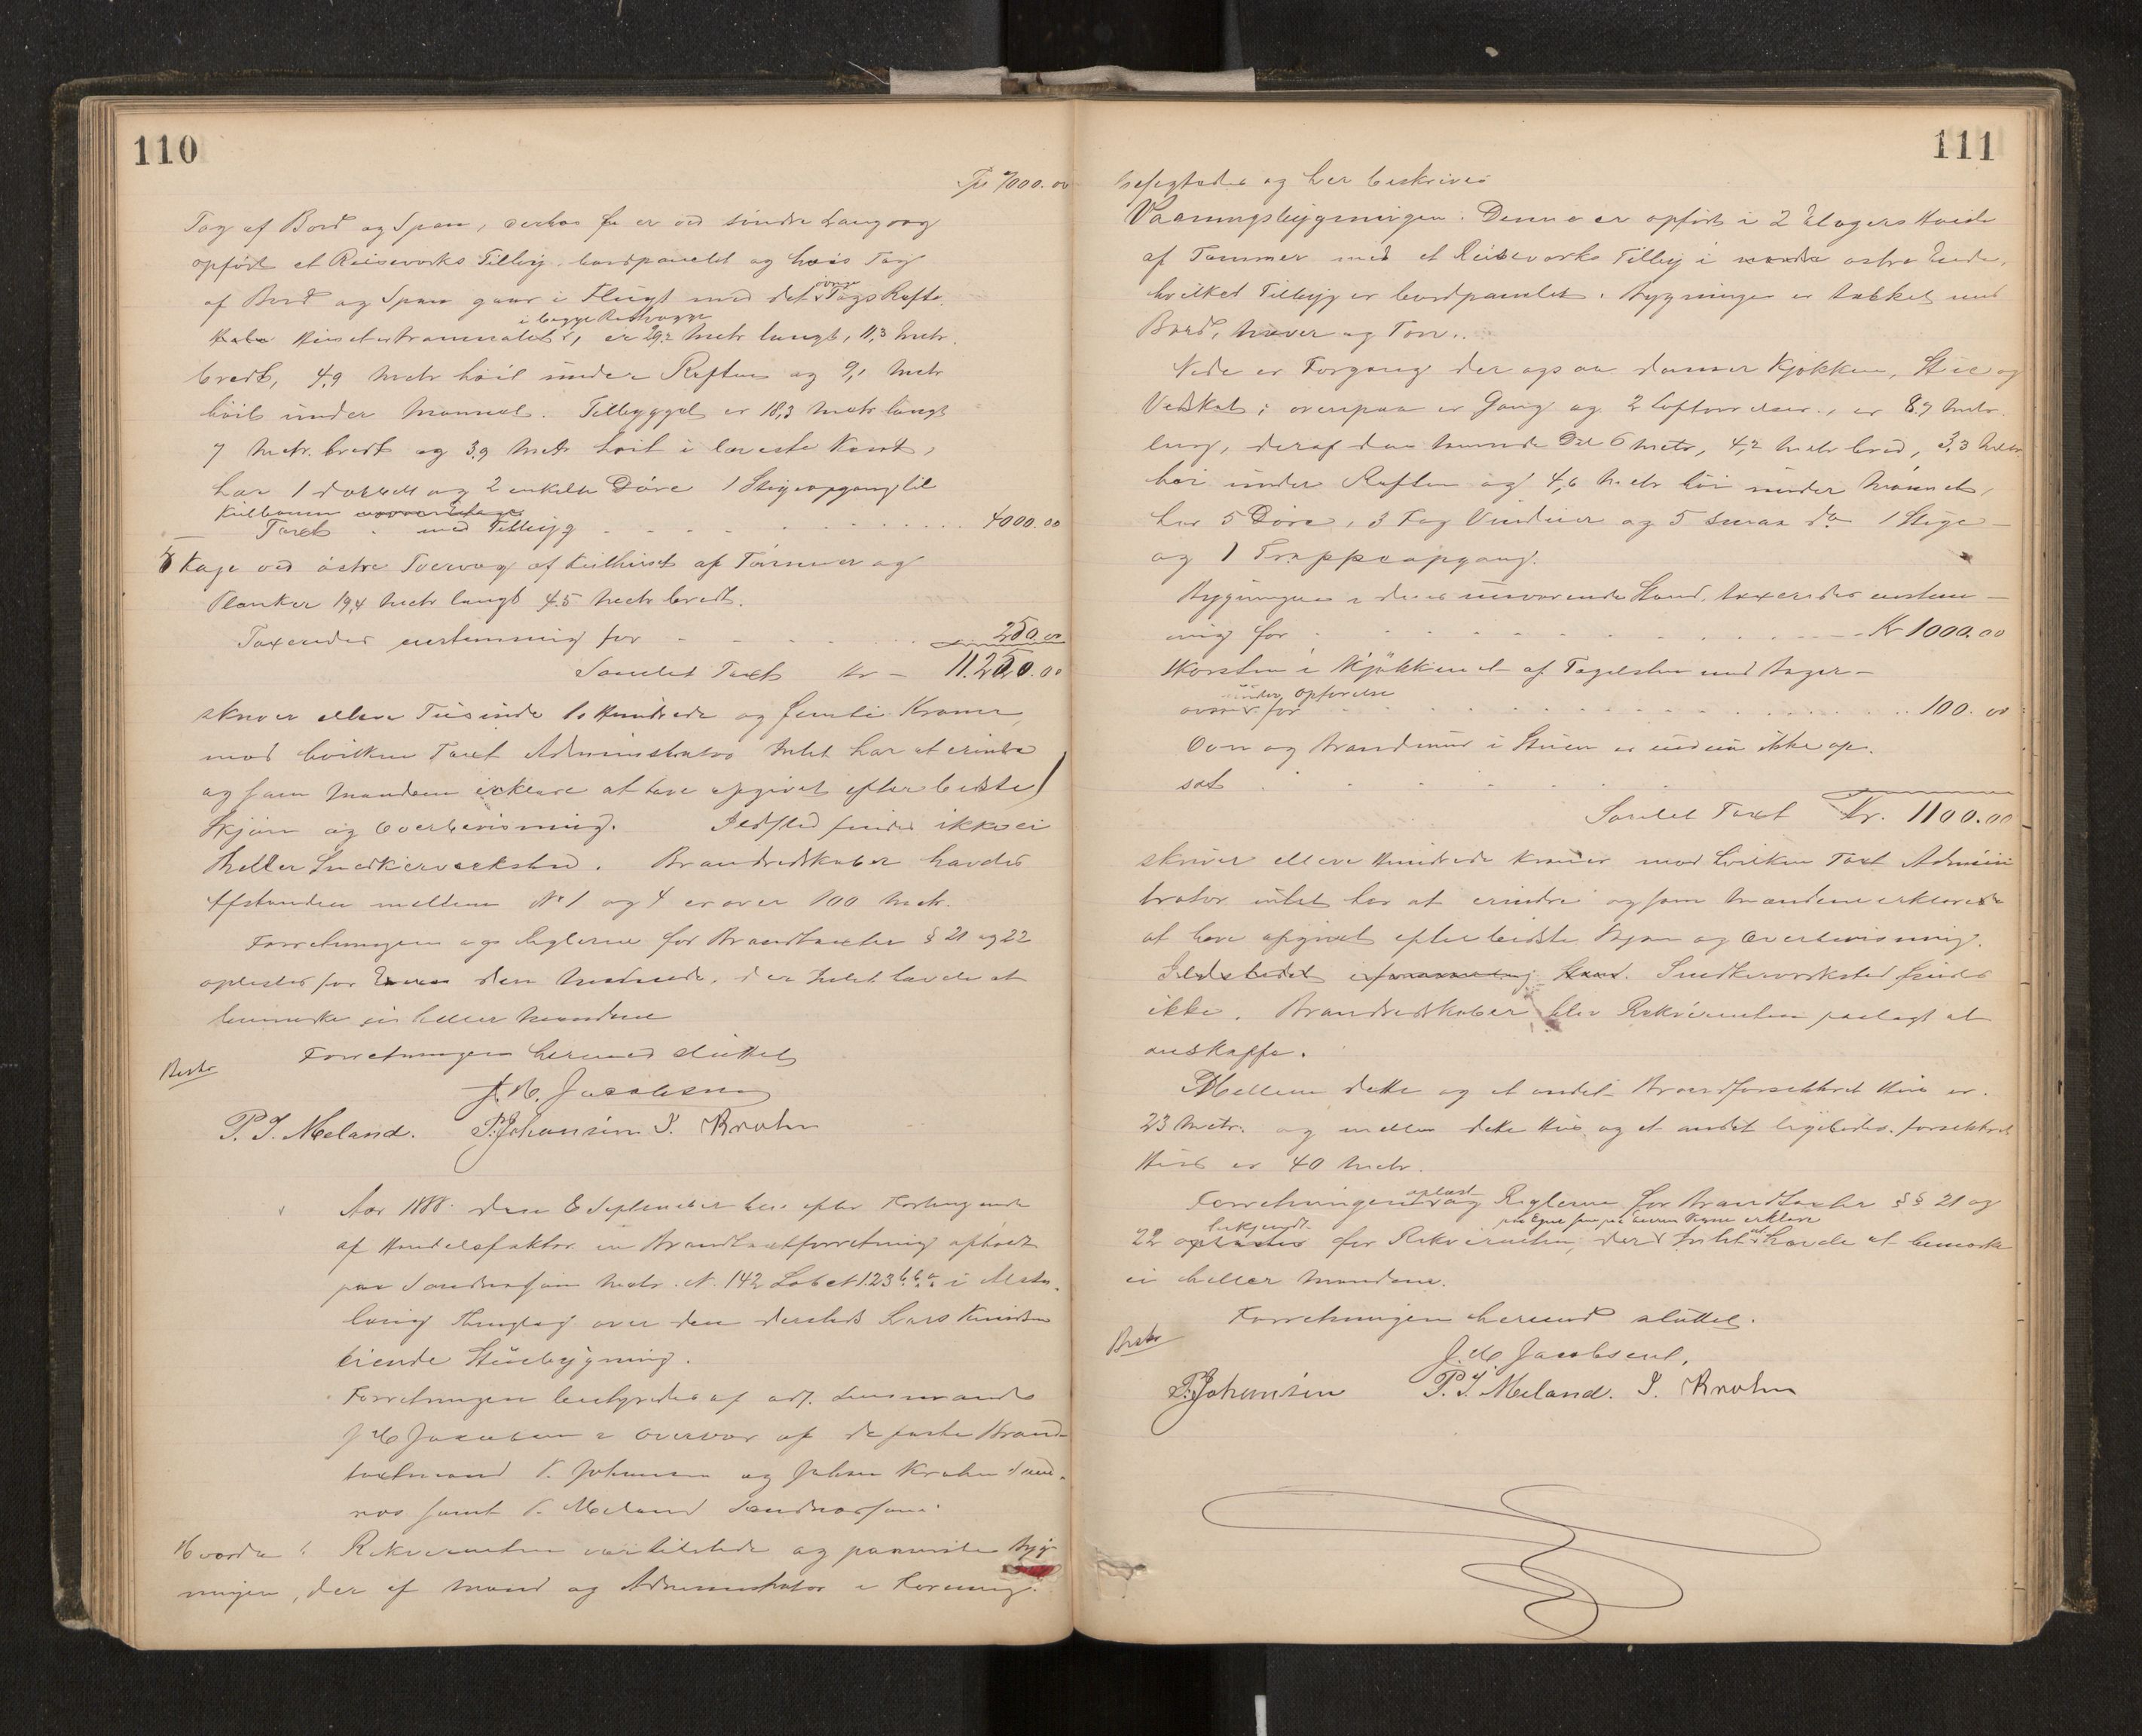 110
Tp 7000.00
Tag af Bord og Spon, derhos er ved søndre Langvæg
opført et Reisverks Tilbyg bordpanelet og hvis Tag
af Bord og Spon gaar i Flugt med det øvrige Tags Rafte.
Huset er i begge er 29,2 Metr langt, 11,3 Metr.
bredt, 4,9 Metr høit under Raften og 9,1 Metr
høit under Mønnet. Tilbygget er 18,3 Metr langt
7 Metr. bredt og 3,9 Metr høit i laveste Kant,
har 1 dobbelt og 2 enkelte Døre 1 Stigeopgang til
Taxt med Tilbyg 4000.00
5 Kaje ved østre Tvervæg af af Tømmer og
Planker 19,4 Metr langt 4,5 Metr bredt.
Taxeredes enstemmig for 250.00
Samlet Taxt Kr - 11.250.00
skriver elleve Tusinde to Hundrede og femti Kroner,
mod hvilken Taxt Administrator Intet har at erindre
og som Mændene erklære at have afgivet efter bedste
Skjøn og Overbevisning. Ildsted findes ikke ei
heller Snedkerværksted. Brandredskaber havdes
Afstanden mellem No 1 og 4 er over 100 Metr.
Forretningen og Reglerne for Brandtaxter § 21 og 22
oplæstes for den der Intet havde at
bemærke ei heller Mændene
Forretningen hermed sluttet
J. M. Jacobsen
P. J. Meland. P. Johansen J. Krohn
Aar 1888 den 8 September blev efter Forlangende
af Handelsfaktor en Brandtaxtforretning afholdt
paa Søndresjøen Matr. N. 142 Løbet 123 b.b.a i Alsta-
houg Thinglag over den derteds Lars Knudsen
eiende Stuebygning.
Forretningen bestyredes af adj. Lensmand
J M Jacobsen i Overvær af de faste Brand-
taxtmænd P. Johansen og Johan Krohn Sand-
nes samt P. Meland
Rekvirenten var tilstede og paaviste Byg-
ningen, der af Mænd og Administrator i Forening
111
besigtedes og her beskrives
Vaaningsbygningen. Denne er opført i 2 Etagers Høide
af Tømmer med et Reisverks Tilbyg i østre Ende,
hvilket Tilbyg er bordpanelet. Bygningen er tækket med
Bord, Næver og Torv.
Nede er Forgang der ogsaa danner Kjøkken, Stue og
Vedskot; ovenpaa er Gang og 2 Loftværelser, er 8,7 Metr.
lang, deraf den Del 6 Metr, 4,2 Metr bred, 3,3 Metr
høi under Raften og 4,6 Metr høi under Mønnet,
har 5 Døre, 3 Fag Vinduer og 5 smaa do 1 Stige-
og 1 Trappeopgang.
Bygningen i dens nuværende Stand taxeredes enstem-
mig for Kr 1000.00
Skorsten i Kjøkkenet af Tegelsten med Bager-
ovn under Opførelse for 100.00
Ovn og Brandmur i Stuen er endnu ikke op-
sat
Samlet Taxt Kr. 1100.00
skriver elleve Hundrede Kroner mod hvilken Taxt Admini
trator intet har at erindre og som Mændene erklærede
at have afgivet efter bedste Skjøn og Overbevisning.
Ildstedet Snedkerværksted findes
ikke. Brandredskaber blev Rekvirenten paalagt at
anskaffe.
Mellem dette og et andet Brandforsikkret Hus er
23 Metr. og mellem dette Hus og et andet ligeledes forsikkret
Hus er 40 Metr.
Forretningen oplæst og Reglerne for Brandtaxter §§ 21 og
22 bekjendt for Rekvirenten, der Intet havde at bemærke
ei heller Mændene.
Forretningen hermed sluttet.
J. M. Jacobsen
P. Johansen P. J. Meland. J. Krohn